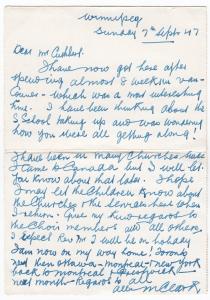 Winnipeg
Sunday 7th Sept 47
Dear Mr Cuthbert.
I have now got here after
spending almost 8 weeks in Van-
couver - which was a most interesting
time. I have been thinking about the
S School taking up and was wondering
how you were all getting along!
I have been in many Churches since
I came to Canada but I will let
you know about that later. I hope
I may let the Children know about
the Churches & the services here when
I return. Give my kind regards to
the Choir members and all others.
I expect Rev Mr I will be on holiday
I am now on my way home Toronto
and then Ottawa - Montreal - New York
back to Montreal
next month - Regards to all